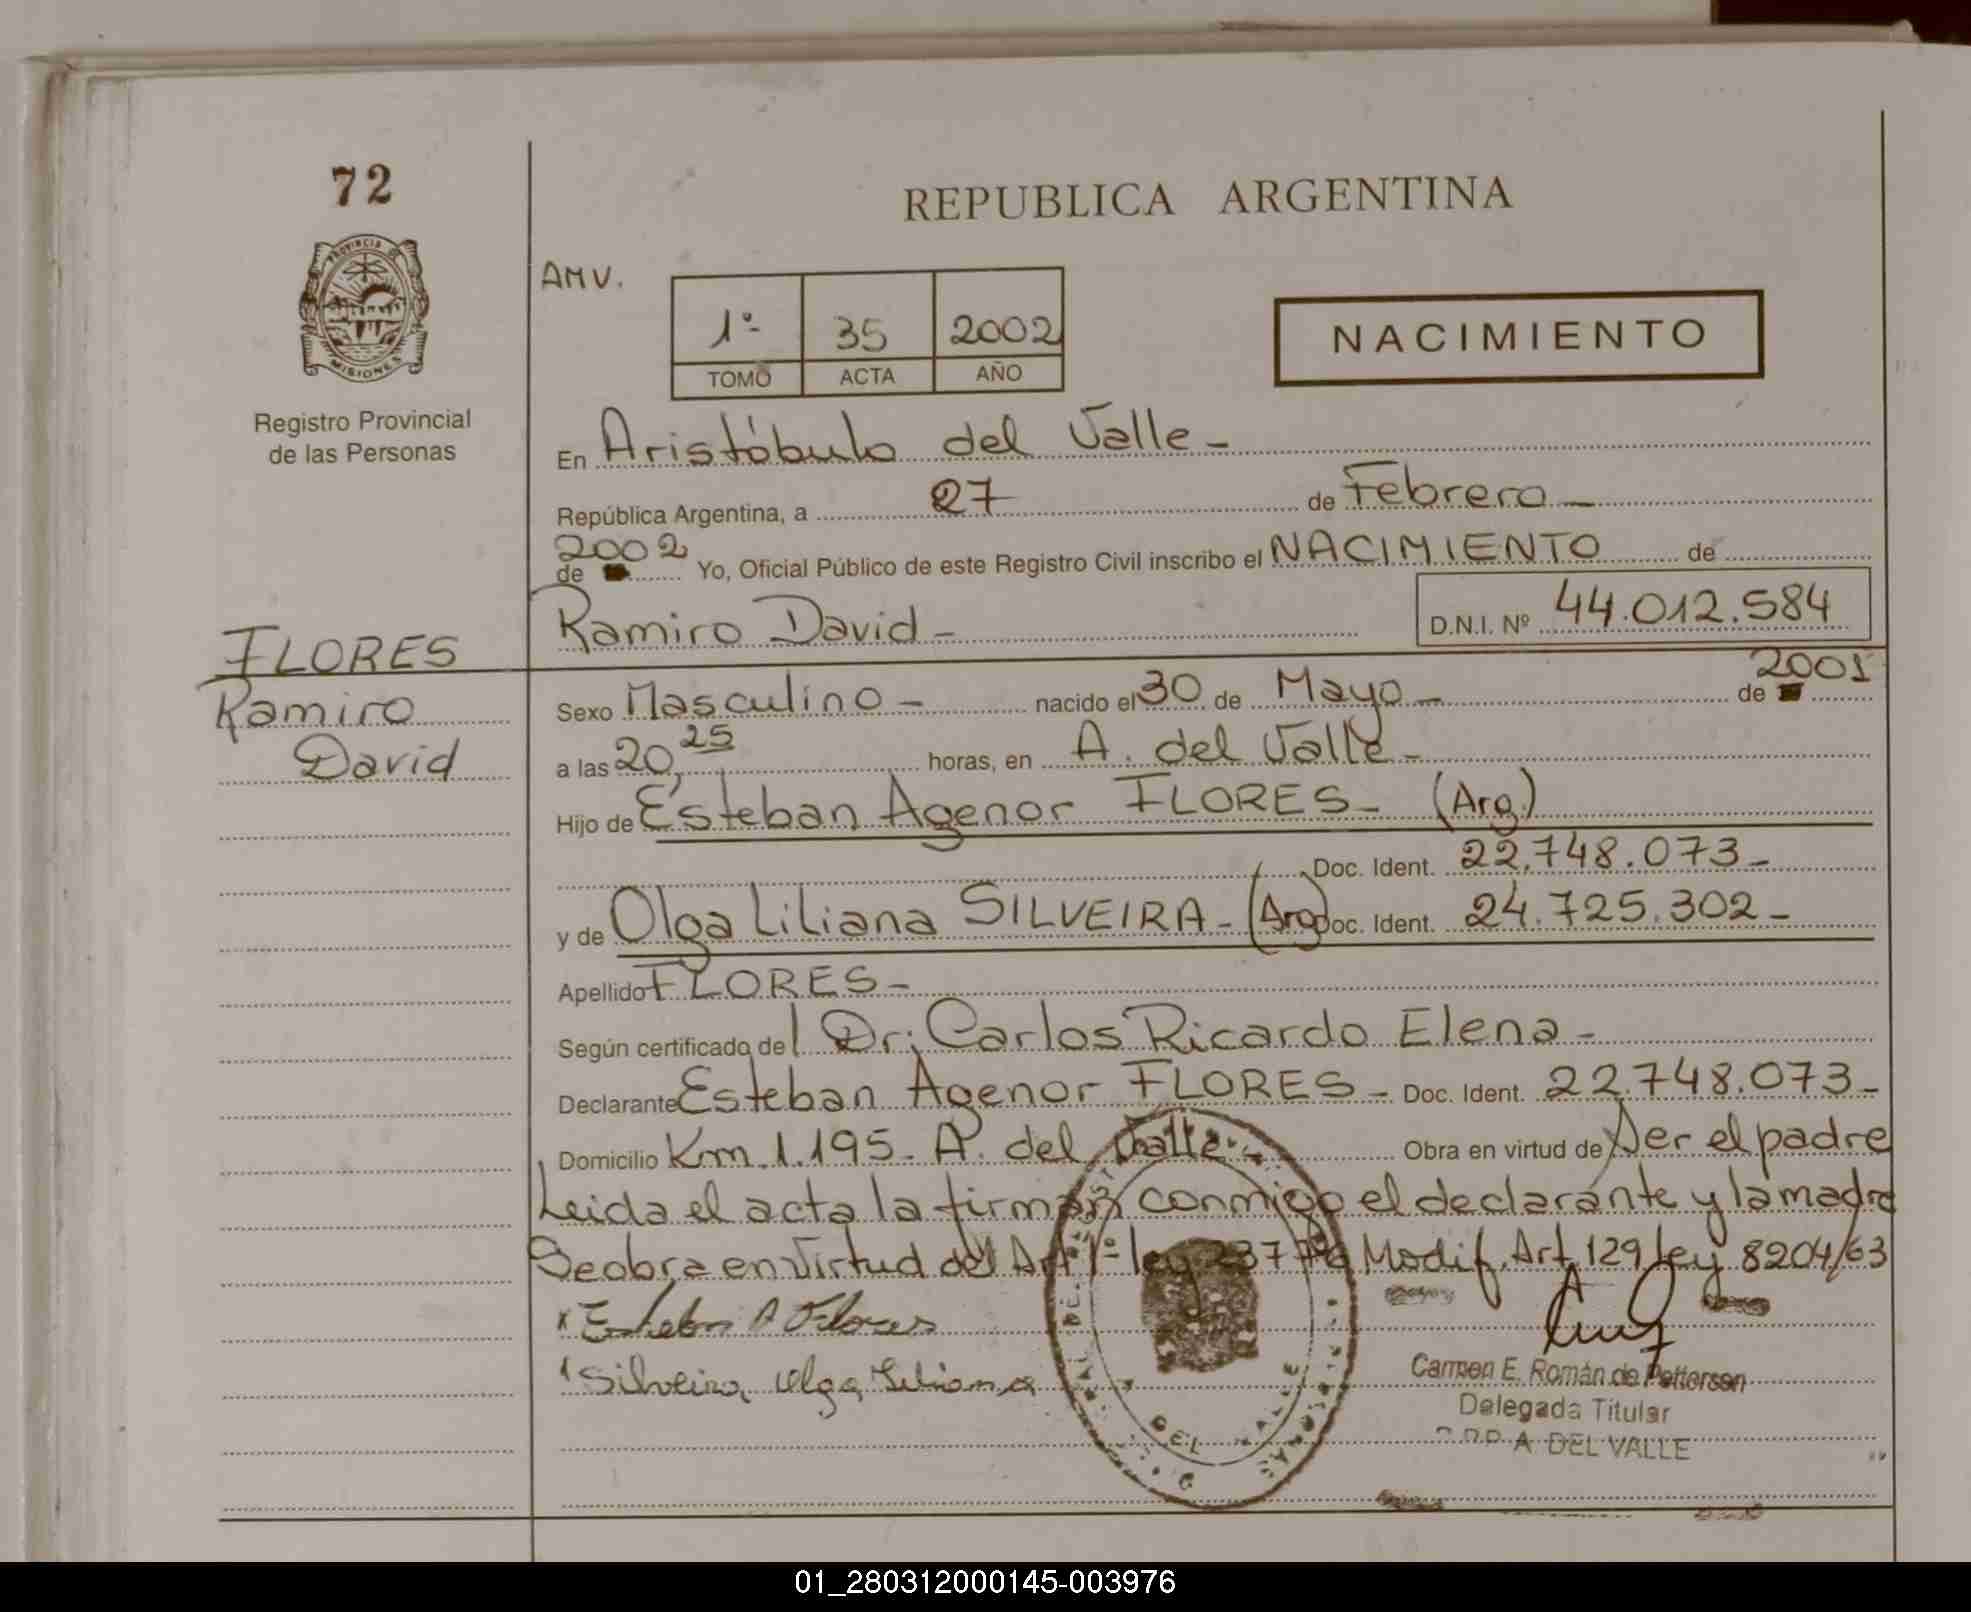 72
REPUBLICA ARGENTINA
PROVINCIA DE
MISIONES
Registro Provincial
de las Personas
AMV.
1º- 35 2002
TOMO ACTA AÑO
NACIMIENTO
En Aristóbulo del Valle -
República Argentina, a 27 de Febrero -
2002
de Yo, Oficial Público de este Registro Civil inscribo el NACIMIENTO de
Ramiro David - D.N.I. Nº 44.012.584
FLORES
Ramiro
David
Sexo Masculino - nacido el 30 de Mayo - de 2001
a las 20,25 horas, en A. del Valle -
Hijo de Esteban Agenor FLORES - (Arg.)
Doc. Ident. 22.748.073 -
y de Olga Liliana SILVEIRA - (Arg) Doc. Ident. 24.725.302 -
Apellido FLORES -
Según certificado del Dr: Carlos Ricardo Elena -
Declarante Esteban Agenor FLORES - Doc. Ident. 22.748.073 -
Domicilio Km. 1.195 - A. del Valle - Obra en virtud de Ser el padre
Leida el acta la firman conmigo el declarante y la madre
Se obra en virtud del Art 1º- ley 23776 Modif. Art. 129 ley 8204/63
x Esteban A Flores
Silveira Olga Liliana
DEL VALLE
Carmen E. Román de Pettersen
Delegada Titular
A DEL VALLE
01_280312000145-003976